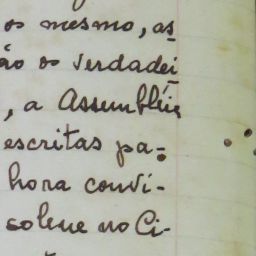 os mesmo, as
ão os verdadei
, a Assembléia
escritas pa-
hora convi-
solene no Ci-